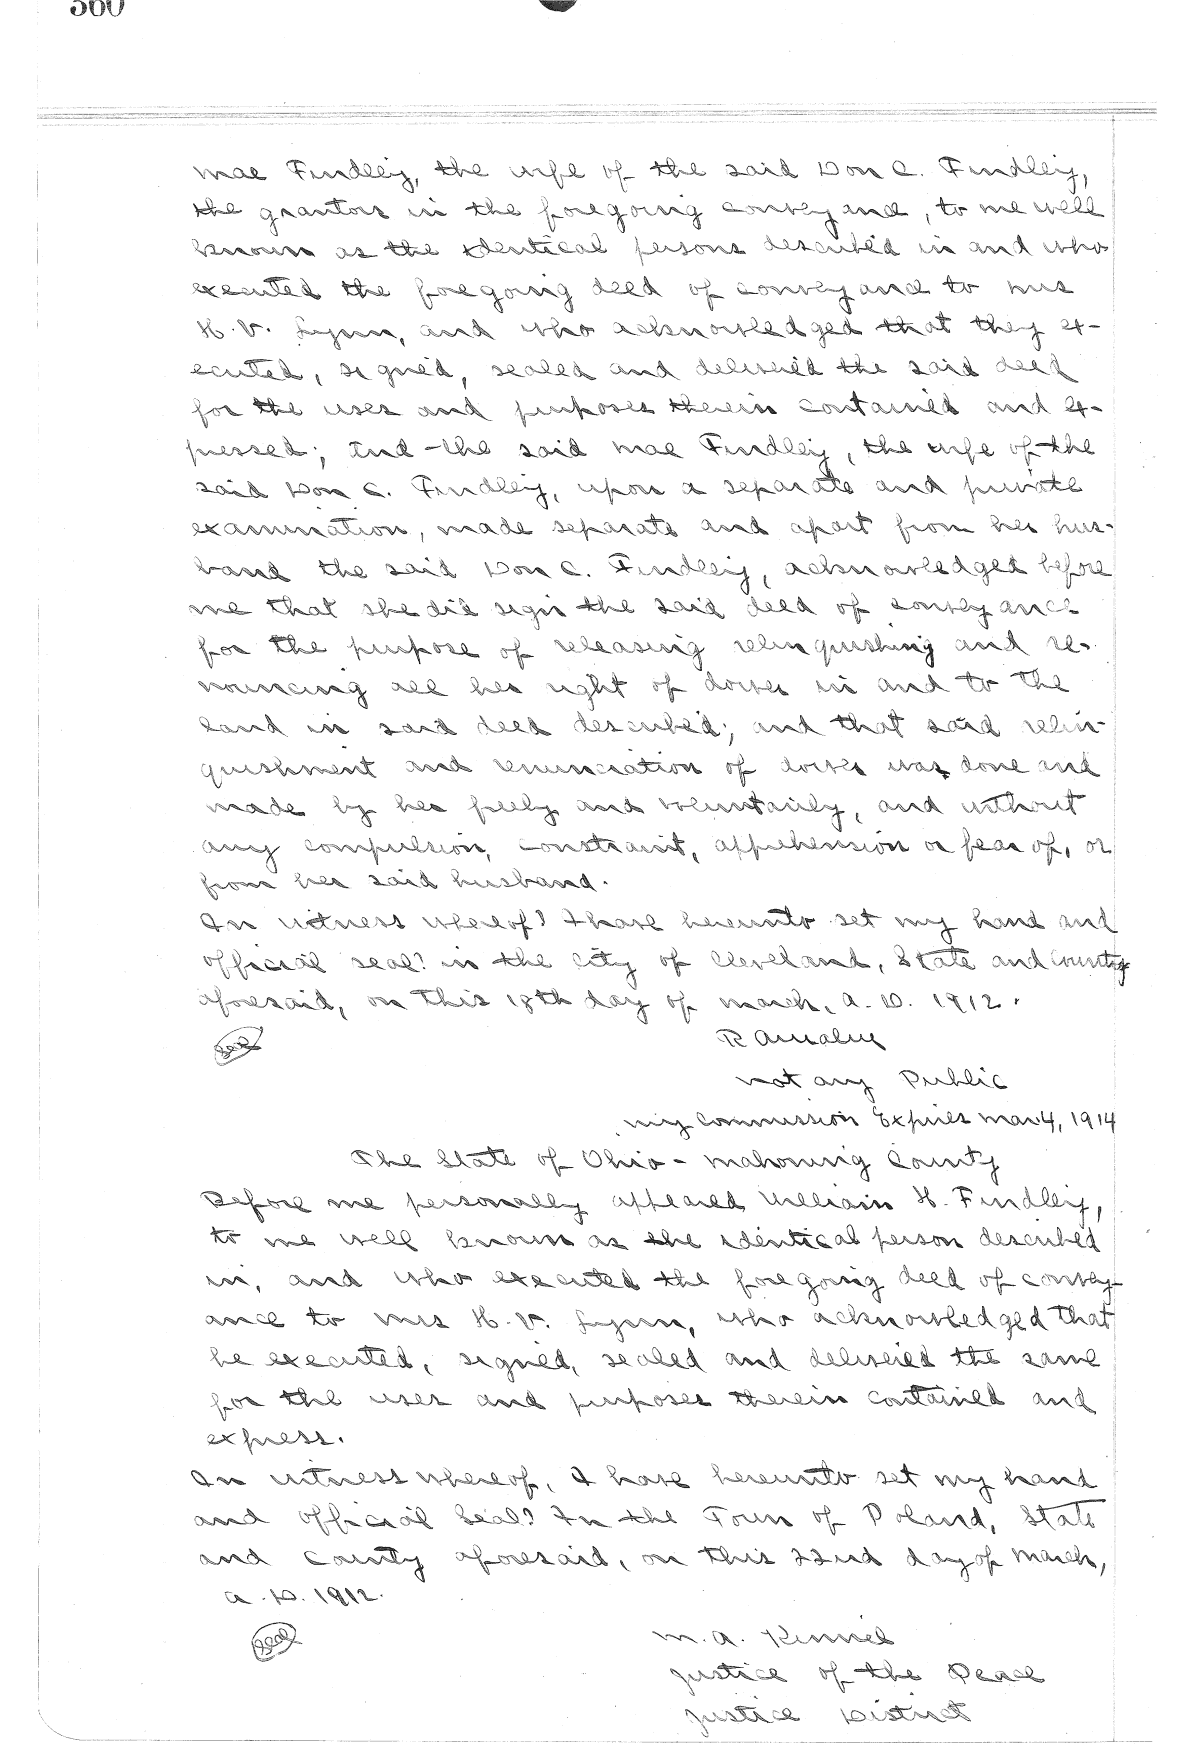 560
Mae Findley, the wife of the said Don C. Findley,
the grantors in the foregoing conveyance, to me well
known as the identical persons described in and who
executed the foregoing deed of conveyance to Mrs
H. V. Lynn, and who acknowledged that they ex-
ecuted, signed, sealed and delivered the said deed
for the uses and purposes therein contained and ex-
pressed; and the said Mae Findley, the wife of the
said Don C. Findley, upon a separate and private
examination, made separate and apart from her hus-
band the said Don C. Findley, acknowledged before
me that she did sign the said deed of conveyance
for the purpose of releasing relinquishing and re-
nouncing all her right of dower in and to the
land in said deed described; and that said relin-
quishment and renunciation of dower was done and
made by her freely and voluntarily, and without
any compulsion, constraint, apprehension or fear of, or
from her said husband.
In witness whereof? I have hereunto set my hand and
official seal? in the city of Cleveland, State and County
aforesaid, on this 18th day of March, A. D. 1912.
Seal
Notary Public
My Commission Expires Mar 4, 1914
The State of Ohio - Mahoning County
Before me personally appeared William H. Findley,
to me well known as the identical person described
in, and who executed the foregoing deed of convey-
ance to Mrs H. V. Lynn, who acknowledged that
he executed, signed, sealed and delivered the same
for the uses and purposes therein contained and
express.
In witness whereof, I have hereunto set my hand
and official Seal? In the Town of Poland, State
and County aforesaid, on this 22nd day of March,
A. D. 1912.
Seal
M. A. Kimmel
Justice of the Peace
Justice District